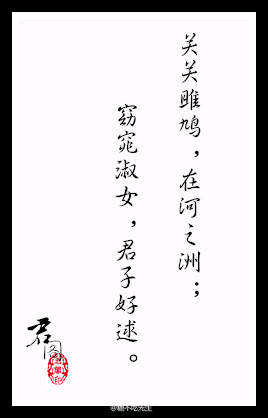 关关雎鸠，在河之洲；
窈窕淑女，君子好逑。
君
图